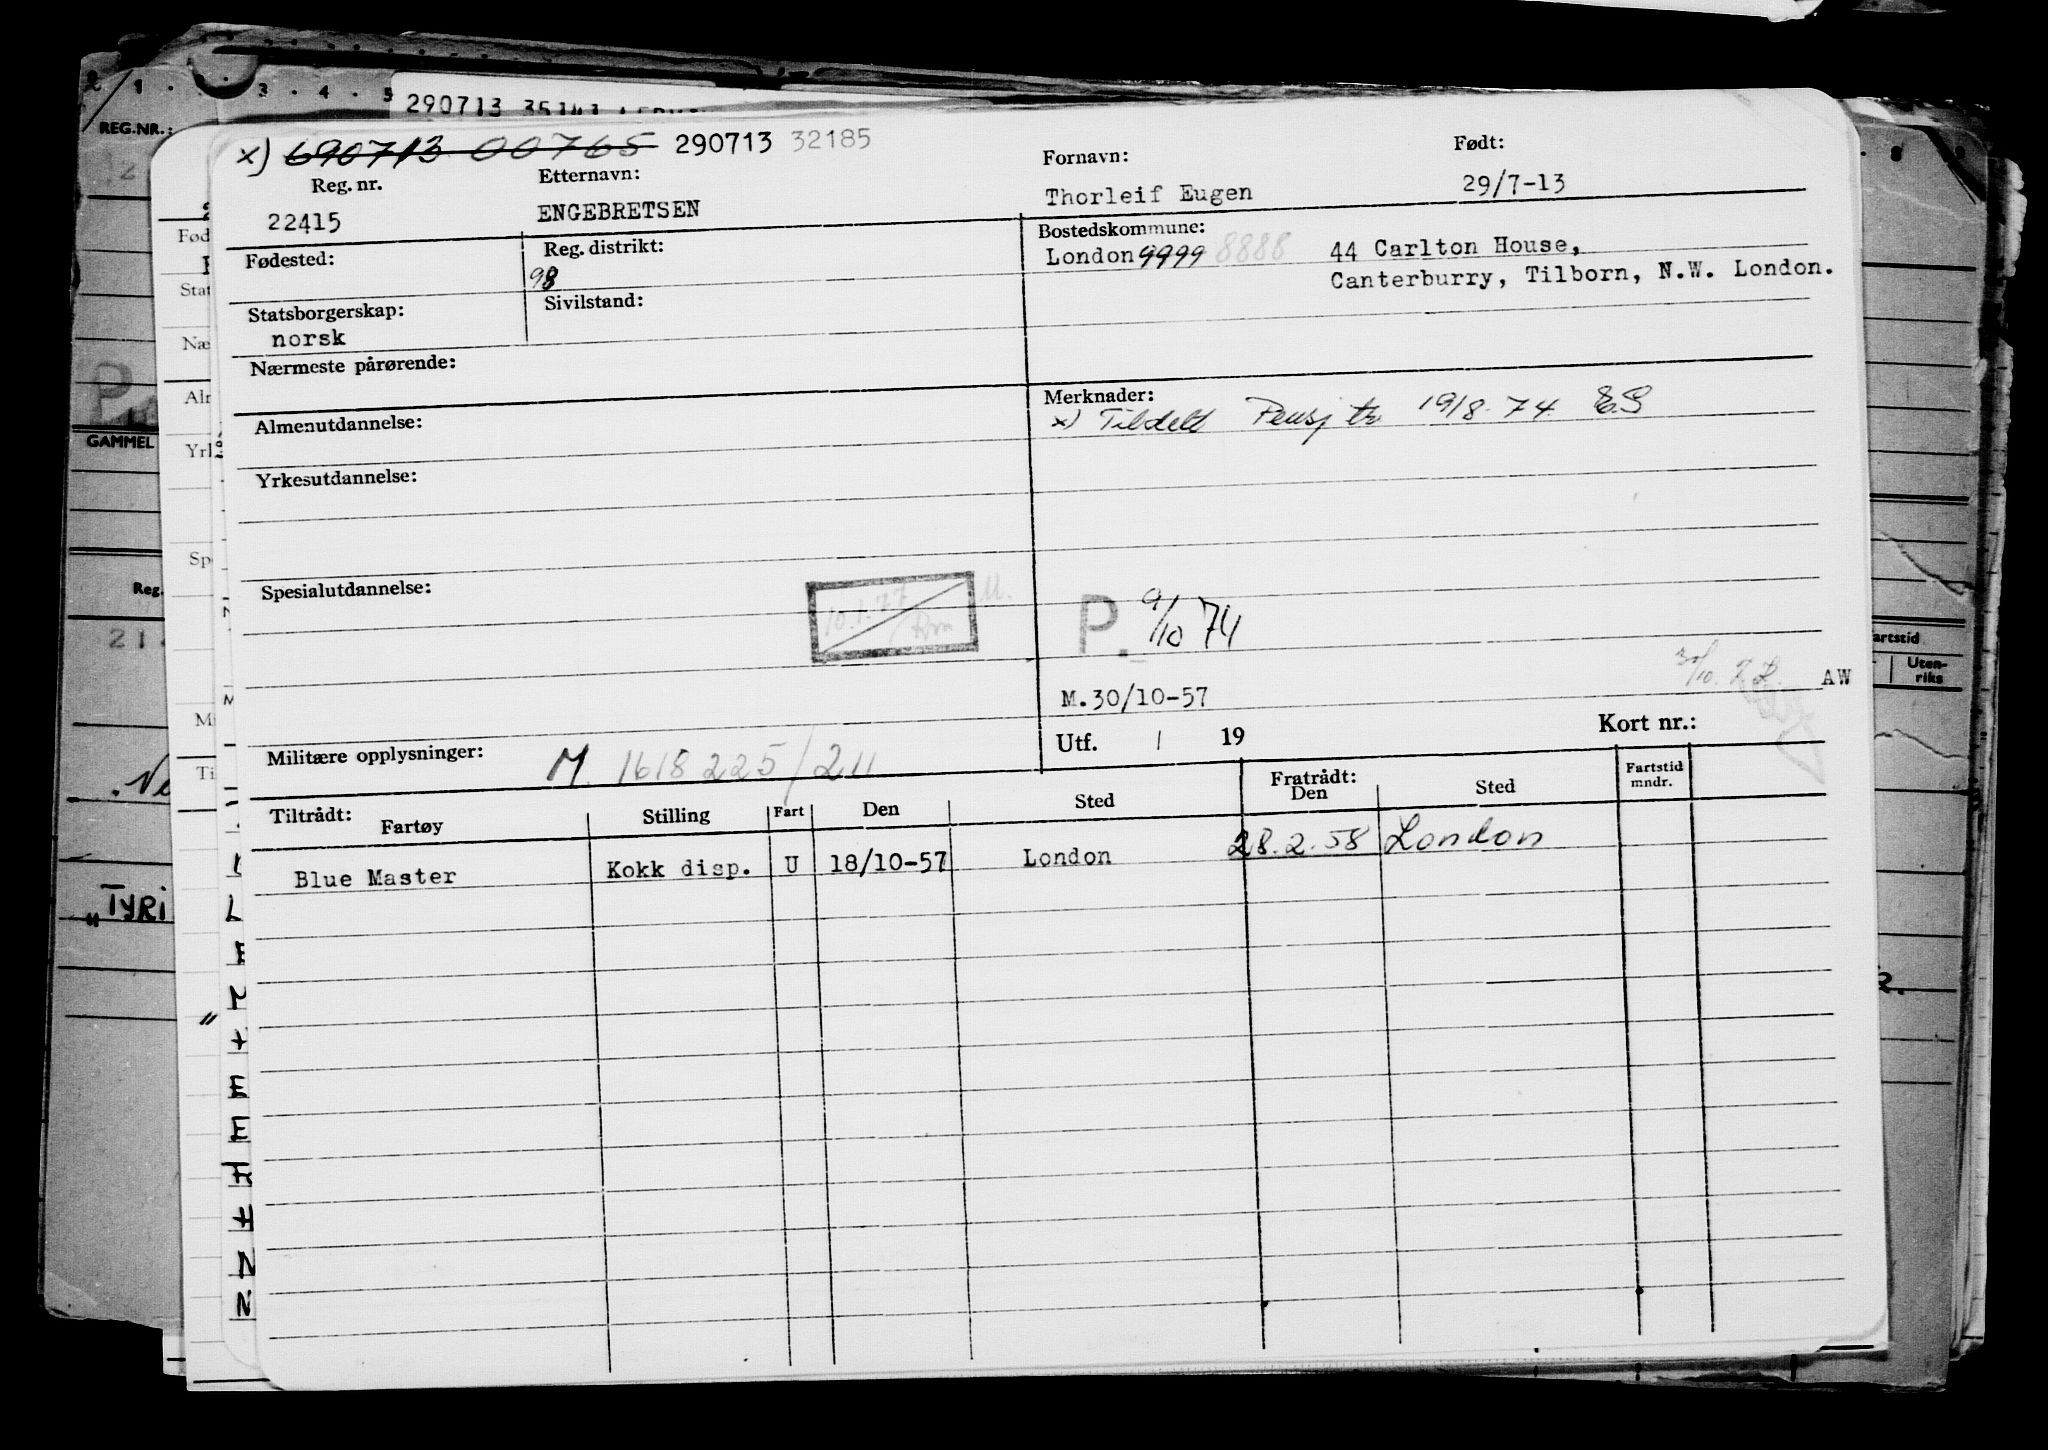 290713 35141
REG.NR.:
x) 690713 00765 290713 32185
Reg. nr. Etternavn: Fornavn: Født:
22415 ENGEBRETSEN Thorleif Eugen 29/7-13
Fødested: Reg. distrikt: Bostedskommune:
98 London 9999 8888 44 Carlton House,
Canterburry, Tilborn, N.W. London.
Statsborgerskap: Sivilstand:
norsk
Nærmeste pårørende:
Merknader:
x) Tildelt Pensj tr 19/8-74 ES
Almenutdannelse:
GAMMEL
Yrkesutdannelse:
Spesialutdannelse:
10.1.77 M.
P. 9/10 74
30/10.
M.30/10-57 AW
Utf. / 19 Kort nr.:
Militære opplysninger: M. 1618225/211
Tiltrådt: Fratrådt: Fartstid mndr.
Fartøy Stilling Fart Den Sted Den Sted
Blue Master Kokk disp. U 18/10-57 London 28.2.58 London
TYRI